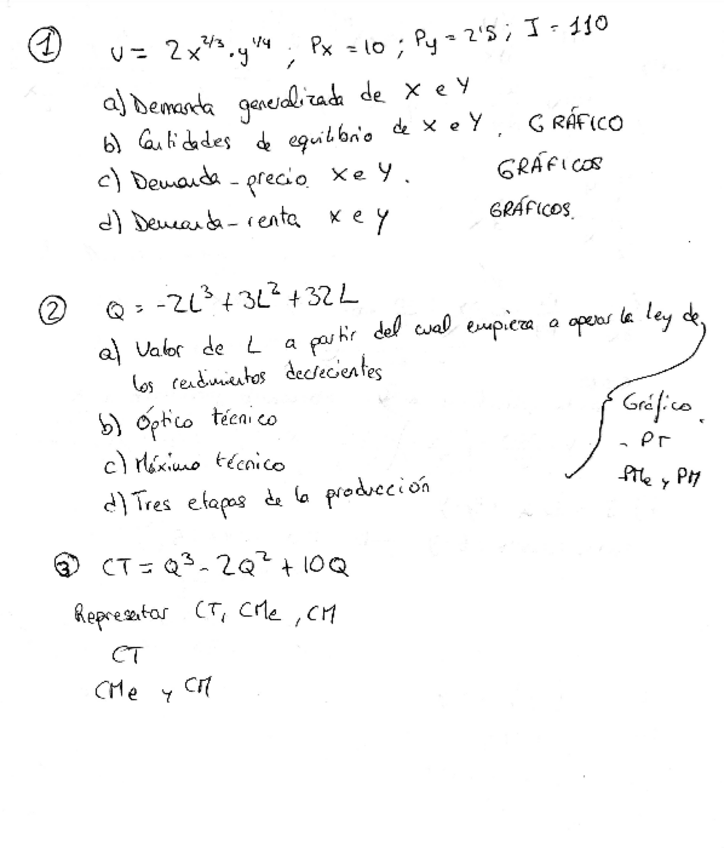 ① U = 2x^2/3 · y^1/4 ; Px = 10 ; Py = 2'5 ; I = 110
a) Demanda generalizada de X e Y
b) Cantidades de equilibrio de X e Y. GRÁFICO
c) Demanda - precio X e Y. GRÁFICOS
d) Demanda - renta X e Y GRÁFICOS.
② Q = -2L³ + 3L² + 32L
a) Valor de L a partir del cual empieza a operar la ley de
los rendimientos decrecientes
b) Óptico técnico
c) Máximo técnico
d) Tres etapas de la producción
Gráfico.
- PT
PMe y PM
③ CT = Q³ - 2Q² + 10Q
Representar CT, CMe, CM
CT
CMe y CM